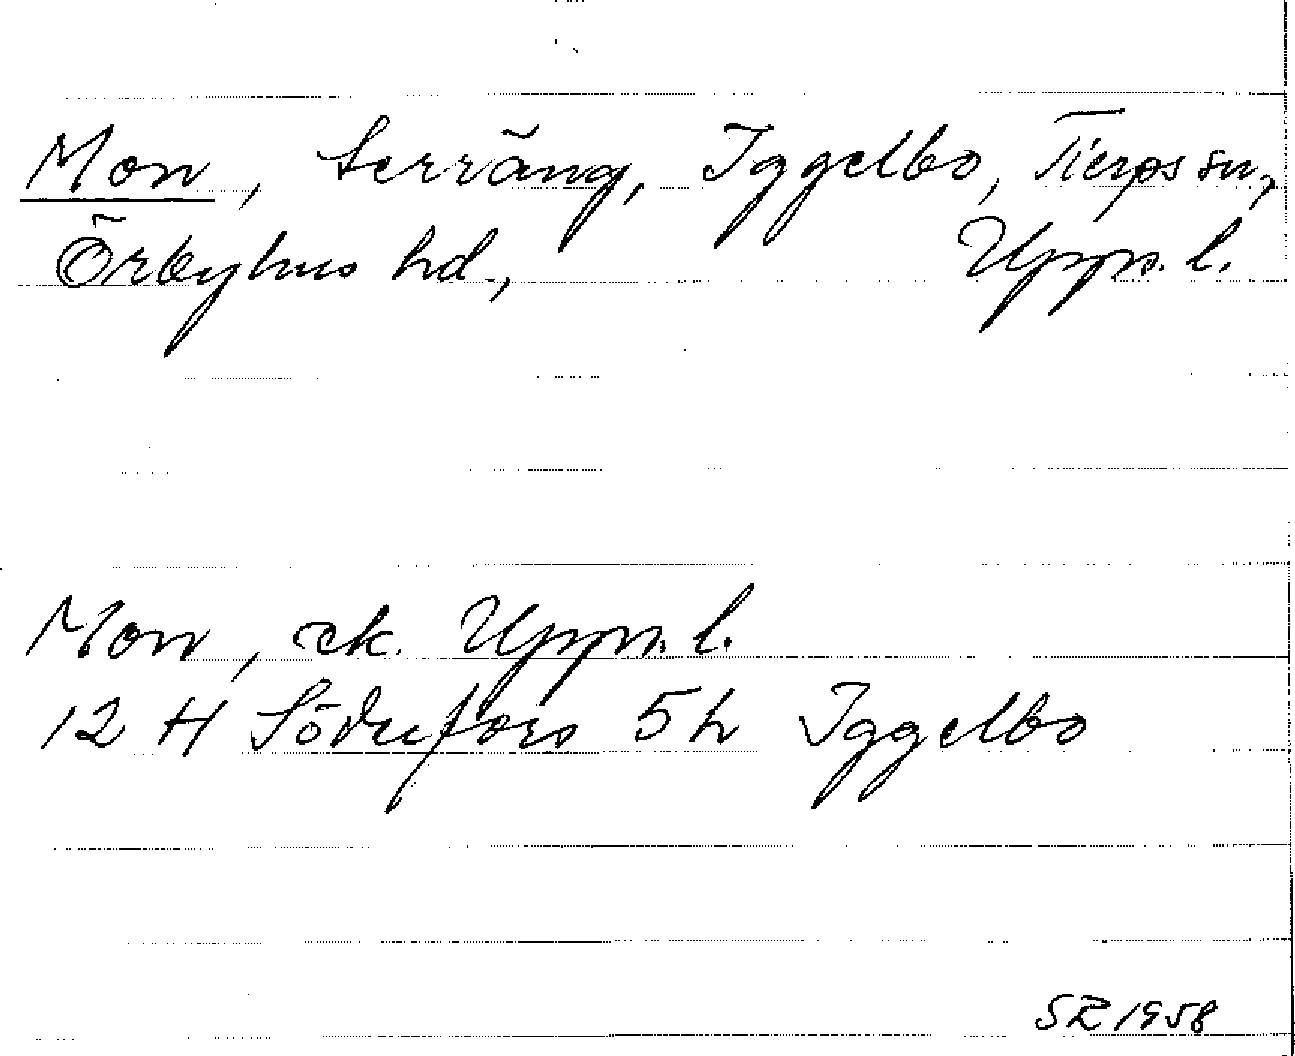 Mon, terräng, Iggelbo, Tierps sn,
Örbyhus hd., Upps. l.
Mon, ek. Upps. l.
12 H Söderfors 5h Iggelbo
SR 1958